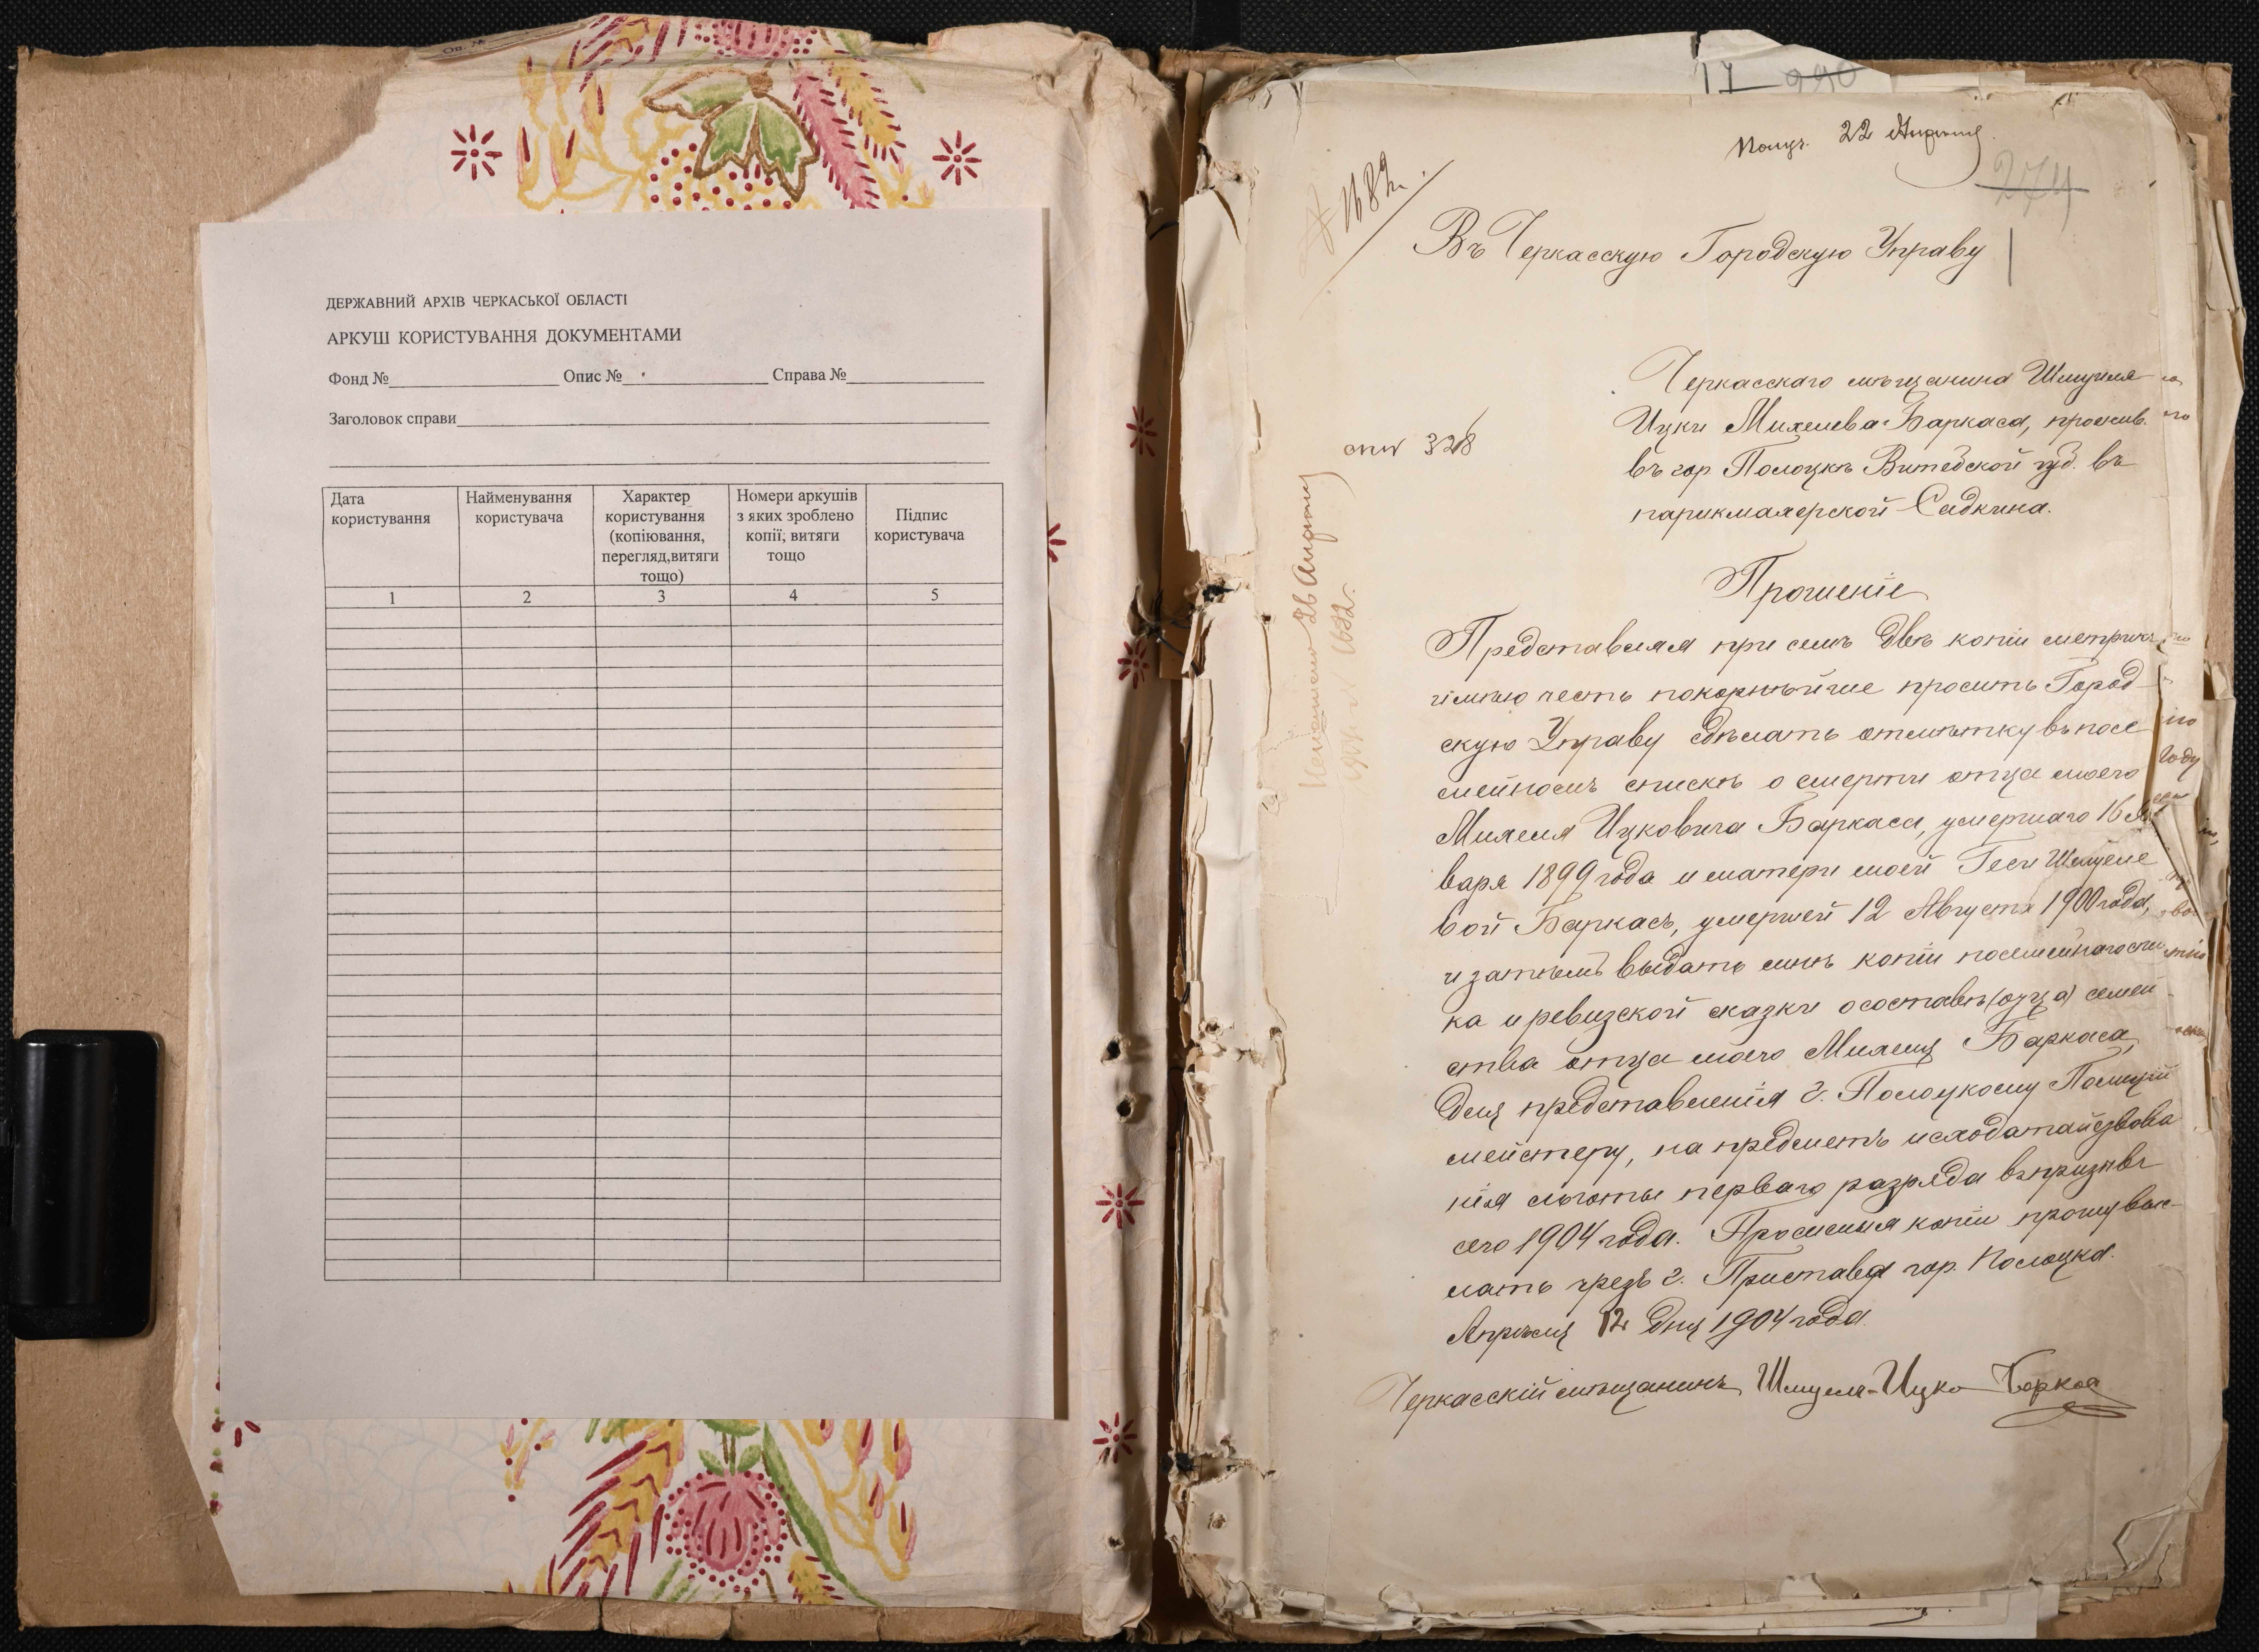 Оп. №
ДЕРЖАВНИЙ АРХІВ ЧЕРКАСЬКОЇ ОБЛАСТІ
АРКУШ КОРИСТУВАННЯ ДОКУМЕНТАМИ
Фонд № Опис № Справа №
Заголовок справи
Дата користування
Найменування користувача
Характер користування (копіювання, перегляд,витяги тощо)
Номери аркушів з яких зроблено копії, витяги тощо
Підпис користувача
1 2 3 4 5
17 990
Получ. 22 Апрѣля
274
№ 1682.
Въ Черкасскую Городскую Управу
1
Черкасскаго мѣщанина Шмуиля
Ицки Михелева Баркаса, прожив.
въ гор Полоцкѣ Витебской губ. въ
парикмахерской Садкина.
328
Исполнено 26 Апрѣля
1682.
Прошеніе
Представляя при семъ двѣ копіи метрикъ
имѣю честь покорнѣйше просить Город-
скую Управу сдѣлать отмѣтку въ посе
мейномъ спискѣ о смерти отца моего
Михеля Ицковича Баркаса, умершаго 16 Ян
варя 1899 года и матери моей Геси Шмуеле
вой Баркасъ, умершей 12 Августа 1900 года,
и затѣмъ выдать мнѣ копіи посемейнаго спи
ка и ревизской сказки о составѣ семей
ства отца моего Михеля Баркаса,
для представленія г. Полоцкому Полицій
мейстеру, на предметъ исходатайствова
нія льготы перваго разряда въ призывъ
сего 1904 года. Просимыя копіи прошу выс-
лать чрезъ г. Пристава гор. Полоцка.
Апрѣля 12 дня 1904 года.
Черкасскій мѣщанинъ Шмуеля-Ицко Боркас